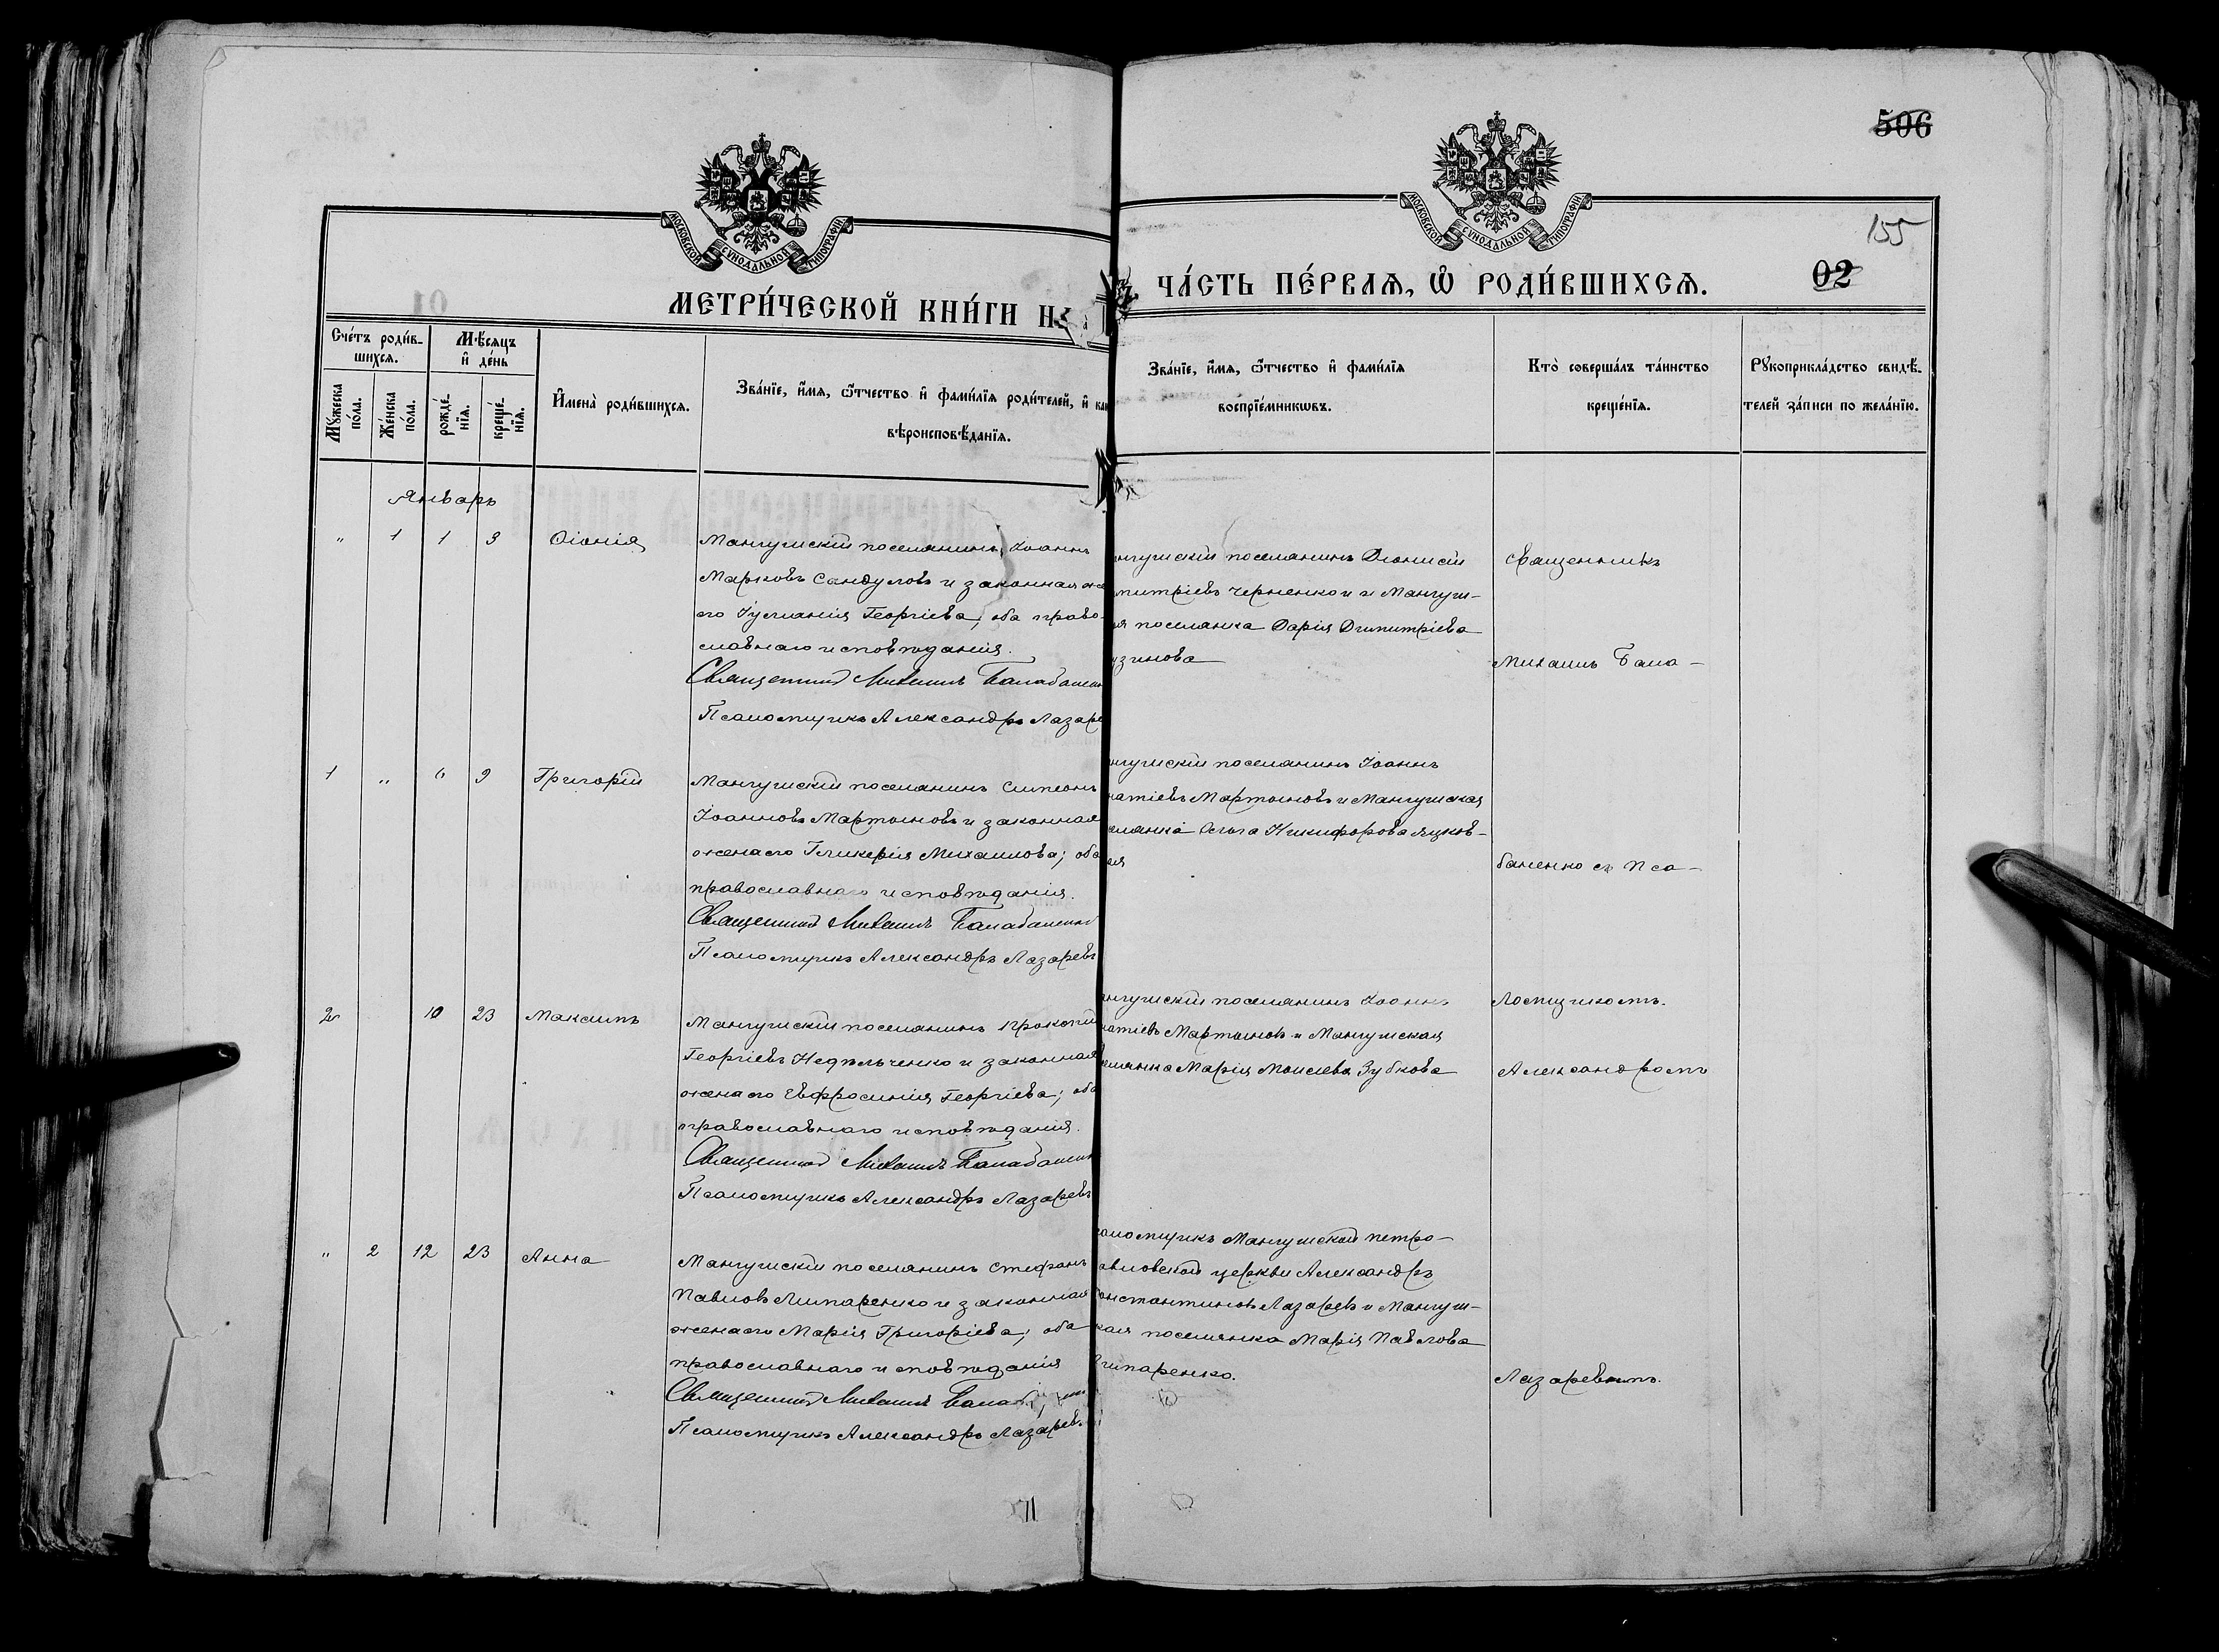 506
155
02
МОСКОВСКОЙ СѴНОДАЛЬНОЙ ТИПОГРАФІИ
МОСКОВСКОЙ СѴНОДАЛЬНОЙ ТИПОГРАФІИ
МЕТРИ́ЧЕСКОЙ КНИ́ГИ Н
ЧА́СТЬ ПЕ́РВАѦ, Ѡ҆ РОДИ́ВШИХСѦ.
Сче́тъ роди́в-
шихсѧ.
Мѣ́сѧцъ
и҆ де́нь
Мꙋжеска
по́ла.
Же́нска
по́ла.
рожде́-
нїѧ.
креще́-
нїѧ.
И҆мена̀ роди́вшихсѧ.
Зва́нїе, и҆́мѧ, ѻ҆́тчество и҆ фами́лїѧ роди́телей, и҆ ка
вѣроисповѣ́данїѧ.
Зва́нїе, и҆́мѧ, ѻ҆́тчество и҆ фами́лїѧ
воспрїе́мникѡвъ.
Кто̀ соверша́лъ та́инство
креще́нїѧ.
Рꙋкоприкла́дство свидѣ́-
телей за́писи по жела́нїю.
Январь
" 1 1 9 Ѳіонія
Мангушскій поселянинъ, Іоаннъ
Марковъ Сандуловъ и законная же
его Іуліанія Георгіева, оба право-
славнаго исповѣданія.
Священникъ Михаилъ Балабаненк
Псаломщикъ Александръ Лазаре
нгушскій поселянинъ Діонисій
митріевъ Черненко и Мангуш-
ая поселянка Дарія Димитріева
узинова
Священникъ
Михаилъ Бала-
1 " 6 9 Григорій
Мангушскій поселянинъ Симеонъ
Іоанновъ Мартыновъ и законная
жена его Гликерія Михаилова; оба
православнаго исповѣданія.
Священникъ Михаилъ Балабаненко
Псаломщикъ Александръ Лазаревъ
нгушскій поселянинъ Іоаннъ
натіевъ Мартыновъ и Мангушская
елянка Ольга Никифорова Яцков-
ая
баненко съ Пса-
2 10 23 Максимъ
Мангушскій поселянинъ Прокопій
Георгіевъ Недѣльченко и законная
жена его Евфросинія Георгіева; оба
православнаго исповѣданія.
Священникъ Михаилъ Балабаненк
Псаломщикъ Александръ Лазаревъ
нгушскій поселянинъ Іоаннъ
натіевъ Мартыновъ и Мангушская
елянка Марія Моисеева Зубкова
ломщикомъ
Александромъ
" 2 12 23 Анна
Мангушскій поселянинъ Стефанъ
Павловъ Липаренко и законная
жена его Марія Григоріева; оба
православнаго исповѣданія
Священникъ Михаилъ Балаб
Псаломщикъ Александръ Лазарев
аломщикъ Мангушской Петро-
авловской церкви Александръ
онстантиновъ Лазаревъ и Мангуш-
кая поселянка Марія Павлова
Липаренко.
Лазаревымъ.